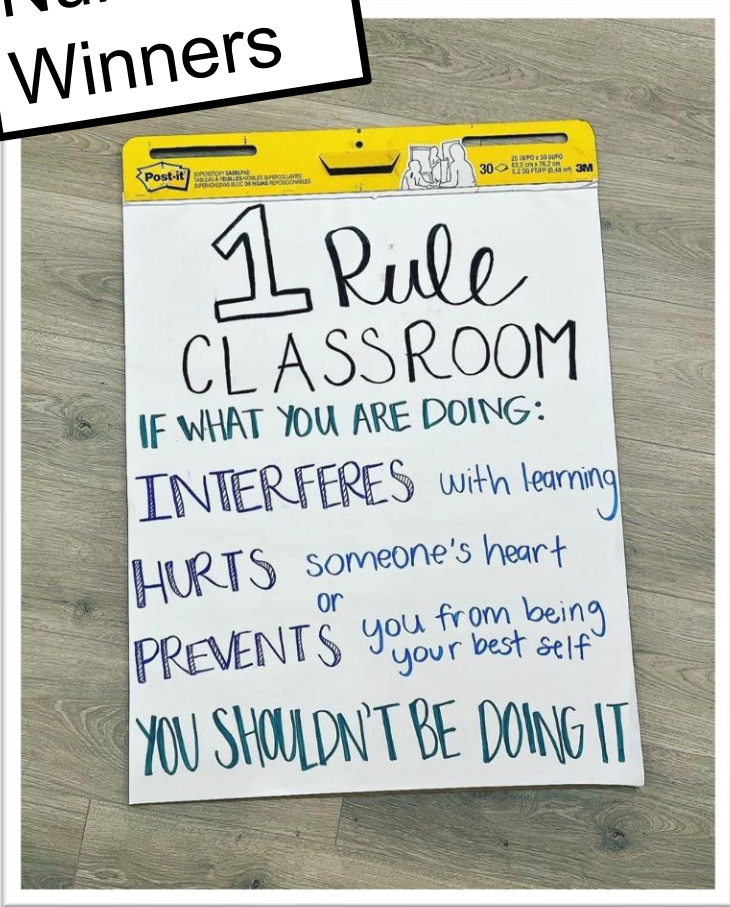 Winners
Post-it
30
3M
1 Rule
CLASSROOM
IF WHAT YOU ARE DOING:
INTERFERES with learning
HURTS someone's heart
or
PREVENTS you from being
your best self
YOU SHOULDN'T BE DOING IT